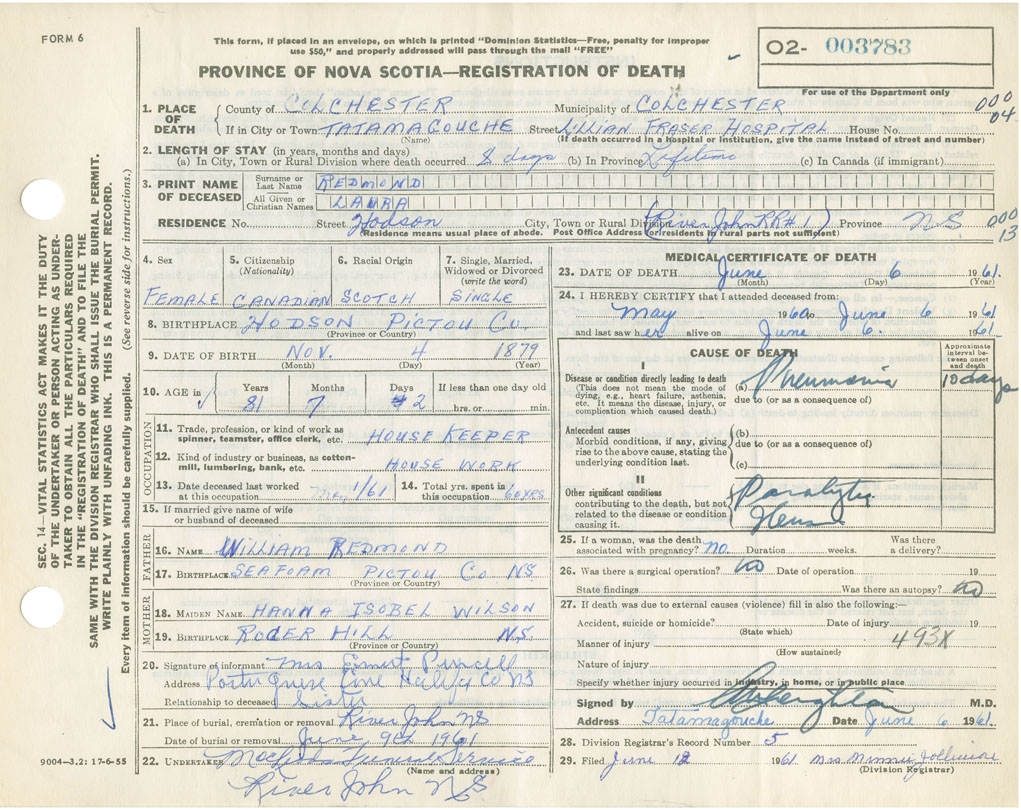 FORM 6
This form, if placed in an envelope, on which is printed "Dominion Statistics—Free, penalty for improper
use $50," and properly addressed will pass through the mail "FREE"
PROVINCE OF NOVA SCOTIA—REGISTRATION OF DEATH
02- 003783
For use of the Department only
1. PLACE OF DEATH County of COLCHESTER Municipality of COLCHESTER 000 04
If in City or Town TATAMAGOUCHE Street LILLIAN FRASER HOSPITAL House No.
(Name) (If death occurred in a hospital or institution, give the name instead of street and number)
2. LENGTH OF STAY (in years, months and days)
(a) In City, Town or Rural Division where death occurred 8 days (b) In Province Lifetime (c) In Canada (if immigrant)
3. PRINT NAME OF DECEASED
Surname or Last Name REDMOND
All Given or Christian Names LAURA
RESIDENCE No. Street Hodson City, Town or Rural Division (River John RR#1) Province N.S. 000 13
(Residence means usual place of abode. Post Office Address for residents in rural parts not sufficient)
4. Sex FEMALE
5. Citizenship (Nationality) CANADIAN
6. Racial Origin SCOTCH
7. Single, Married, Widowed or Divorced (write the word) SINGLE
8. BIRTHPLACE HODSON PICTOU Co.
(Province or Country)
9. DATE OF BIRTH NOV. 4 1879
(Month) (Day) (Year)
10. AGE in Years 81 Months 7 Days 2 If less than one day old hrs. or min.
OCCUPATION
11. Trade, profession, or kind of work as spinner, teamster, office clerk, etc. HOUSE KEEPER
12. Kind of industry or business, as cotton-mill, lumbering, bank, etc. HOUSE WORK
13. Date deceased last worked at this occupation May 1/61
14. Total yrs. spent in this occupation 60 YRS.
15. If married give name of wife or husband of deceased
FATHER
16. NAME WILLIAM REDMOND
17. BIRTHPLACE SEAFOAM PICTOU Co. NS
(Province or Country)
MOTHER
18. MAIDEN NAME HANNA ISOBEL WILSON
19. BIRTHPLACE ROGER HILL N.S.
(Province or Country)
20. Signature of informant Mrs Ernest Purcell
Address Portuguese Cove Halifax Co NS
Relationship to deceased Sister
21. Place of burial, cremation or removal River John NS
Date of burial or removal June 9th 1961
22. UNDERTAKER Funeral Service
(Name and address)
River John NS
9004—3.2: 17-6-55
MEDICAL CERTIFICATE OF DEATH
23. DATE OF DEATH June 6 1961.
(Month) (Day) (Year)
24. I HEREBY CERTIFY that I attended deceased from:
May 1960 to June 6 1961
and last saw her alive on June 6. 1961.
CAUSE OF DEATH
Approximate interval between onset and death
I
Disease or condition directly leading to death
(This does not mean the mode of dying, e.g., heart failure, asthenia, etc. It means the disease, injury, or complication which caused death.)
(a) Pneumonia 10 days
due to (or as a consequence of)
Antecedent causes
Morbid conditions, if any, giving rise to the above cause, stating the underlying condition last.
(b)
due to (or as a consequence of)
(c)
II
Other significant conditions
contributing to the death, but not related to the disease or condition causing it.
Paralytic
25. If a woman, was the death associated with pregnancy? no. Duration weeks. Was there a delivery?
26. Was there a surgical operation? no Date of operation 19
State findings Was there an autopsy? no
27. If death was due to external causes (violence) fill in also the following:—
Accident, suicide or homicide? Date of injury 19
(State which)
Manner of injury 493X
(How sustained)
Nature of injury
Specify whether injury occurred in industry, in home, or in public place
Signed by M.D.
Address Tatamagouche Date June 6 1961.
28. Division Registrar's Record Number 5
29. Filed June 12 1961 Mrs Minnie
(Division Registrar)
SEC. 14—VITAL STATISTICS ACT MAKES IT THE DUTY
OF THE UNDERTAKER OR PERSON ACTING AS UNDER-
TAKER TO OBTAIN ALL THE PARTICULARS REQUIRED
IN THE "REGISTRATION OF DEATH" AND TO FILE THE
SAME WITH THE DIVISION REGISTRAR WHO SHALL ISSUE THE BURIAL PERMIT.
WRITE PLAINLY WITH UNFADING INK. THIS IS A PERMANENT RECORD.
Every item of information should be carefully supplied. (See reverse side for instructions.)